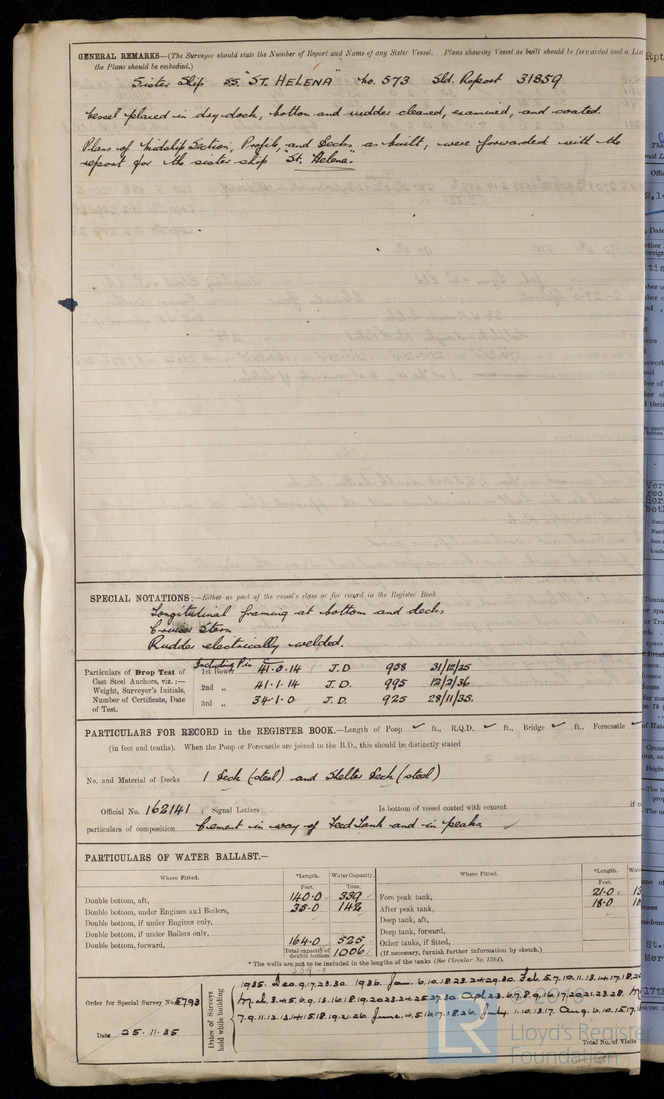 GENERAL REMARKS—(The Surveyor should state the Number of Report and Name of any Sister Vessel. Plans showing Vessel as built should be forwarded and a List
the Plans should be embodied.)
Sister Ship SS. "ST. HELENA" No. 573 Sld. Report 31859
Vessel placed in dry-dock, bottom and rudder cleaned, examined, and coated.
Plans of Midship Section, Profile, and Decks as built, were forwarded with the
report for the sister ship "St. Helena."
SPECIAL NOTATIONS:—Either as part of the vessel's class or for record in the Register Book
Longitudinal framing at bottom and decks
Cruiser Stern
Rudder electrically welded.
Particulars of Drop Test of
Cast Steel Anchors, viz.:—
Weight, Surveyor's Initials,
Number of Certificate, Date
of Test.
Including Pin
1st Bower 41.0.14 J.D 958 31/12/35
2nd „ 41.1.14 J.D. 995 12/2/36
3rd „ 34.1.0 J.D. 925 28/11/35.
PARTICULARS FOR RECORD in the REGISTER BOOK.—Length of Poop ✓ ft., R.Q.D. ✓ ft., Bridge ✓ ft., Forecastle ✓
(in feet and tenths). When the Poop or Forecastle are joined to the B.D., this should be distinctly stated
No. and Material of Decks 1 Deck (steel) and Shelter Deck (steel)
Official No. 162141 ; Signal Letters Is bottom of vessel coated with cement if
particulars of composition Cement in way of Feed Tank and in peaks ✓
PARTICULARS OF WATER BALLAST.—
Where Fitted. *Length. Water Capacity. Where Fitted. *Length.
Feet. Tons. Feet.
Double bottom, aft, 140.0 339 Fore peak tank, 21.0
Double bottom, under Engines and Boilers, 35.0 142 After peak tank, 18.0
Double bottom, if under Engines only, Deep tank, aft,
Double bottom, if under Boilers only, Deep tank, forward,
Double bottom, forward, 164.0 525 Other tanks, if fitted,
Total capacity of double bottom 1006 (If necessary, furnish further information by sketch.)
* The wells are not to be included in the lengths of the tanks (See Circular No. 1284).
Order for Special Survey No. 5793
Date 25.11.35
Dates of Survey held while building
1935. Dec. 9.17.23.30. 1936. Jan. 6.10.18.23.24.29.30. Feb. 5.7.10.11.13.14.17.18.20
Mch. 3.4.5.6.9.13.16.18.19.20.23.24.25.27.30 Apl. 2.3.6.7.8.9.16.17.20.21.23.28.
7.9.11.12.13.14.15.18.19.21.26. June. 4.5.16.17.18.26. July. 1.10.13.17. Aug. 6.10.15.17.
Total No. of Visits
© 2019
LR
Lloyd's Register
Foundation